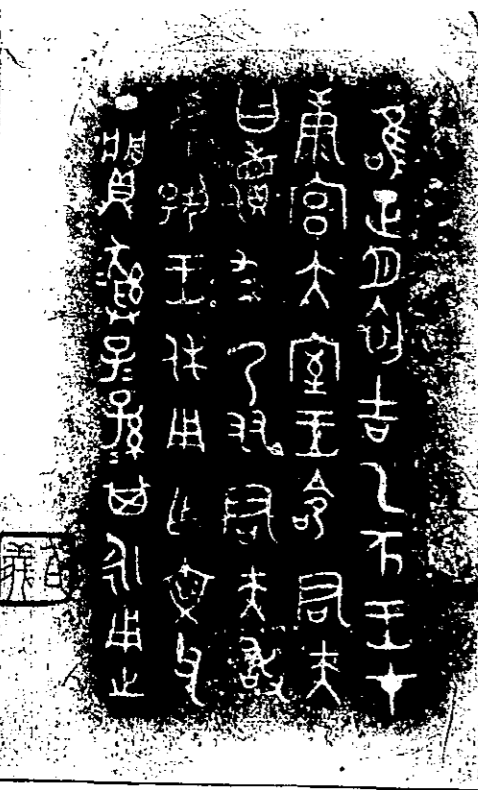 唯正月初吉乙亥王才
康宮大室王命君夫
曰儥求乃友君夫敢
揚王休用乍文父
丁䵼彝子孫其永用之